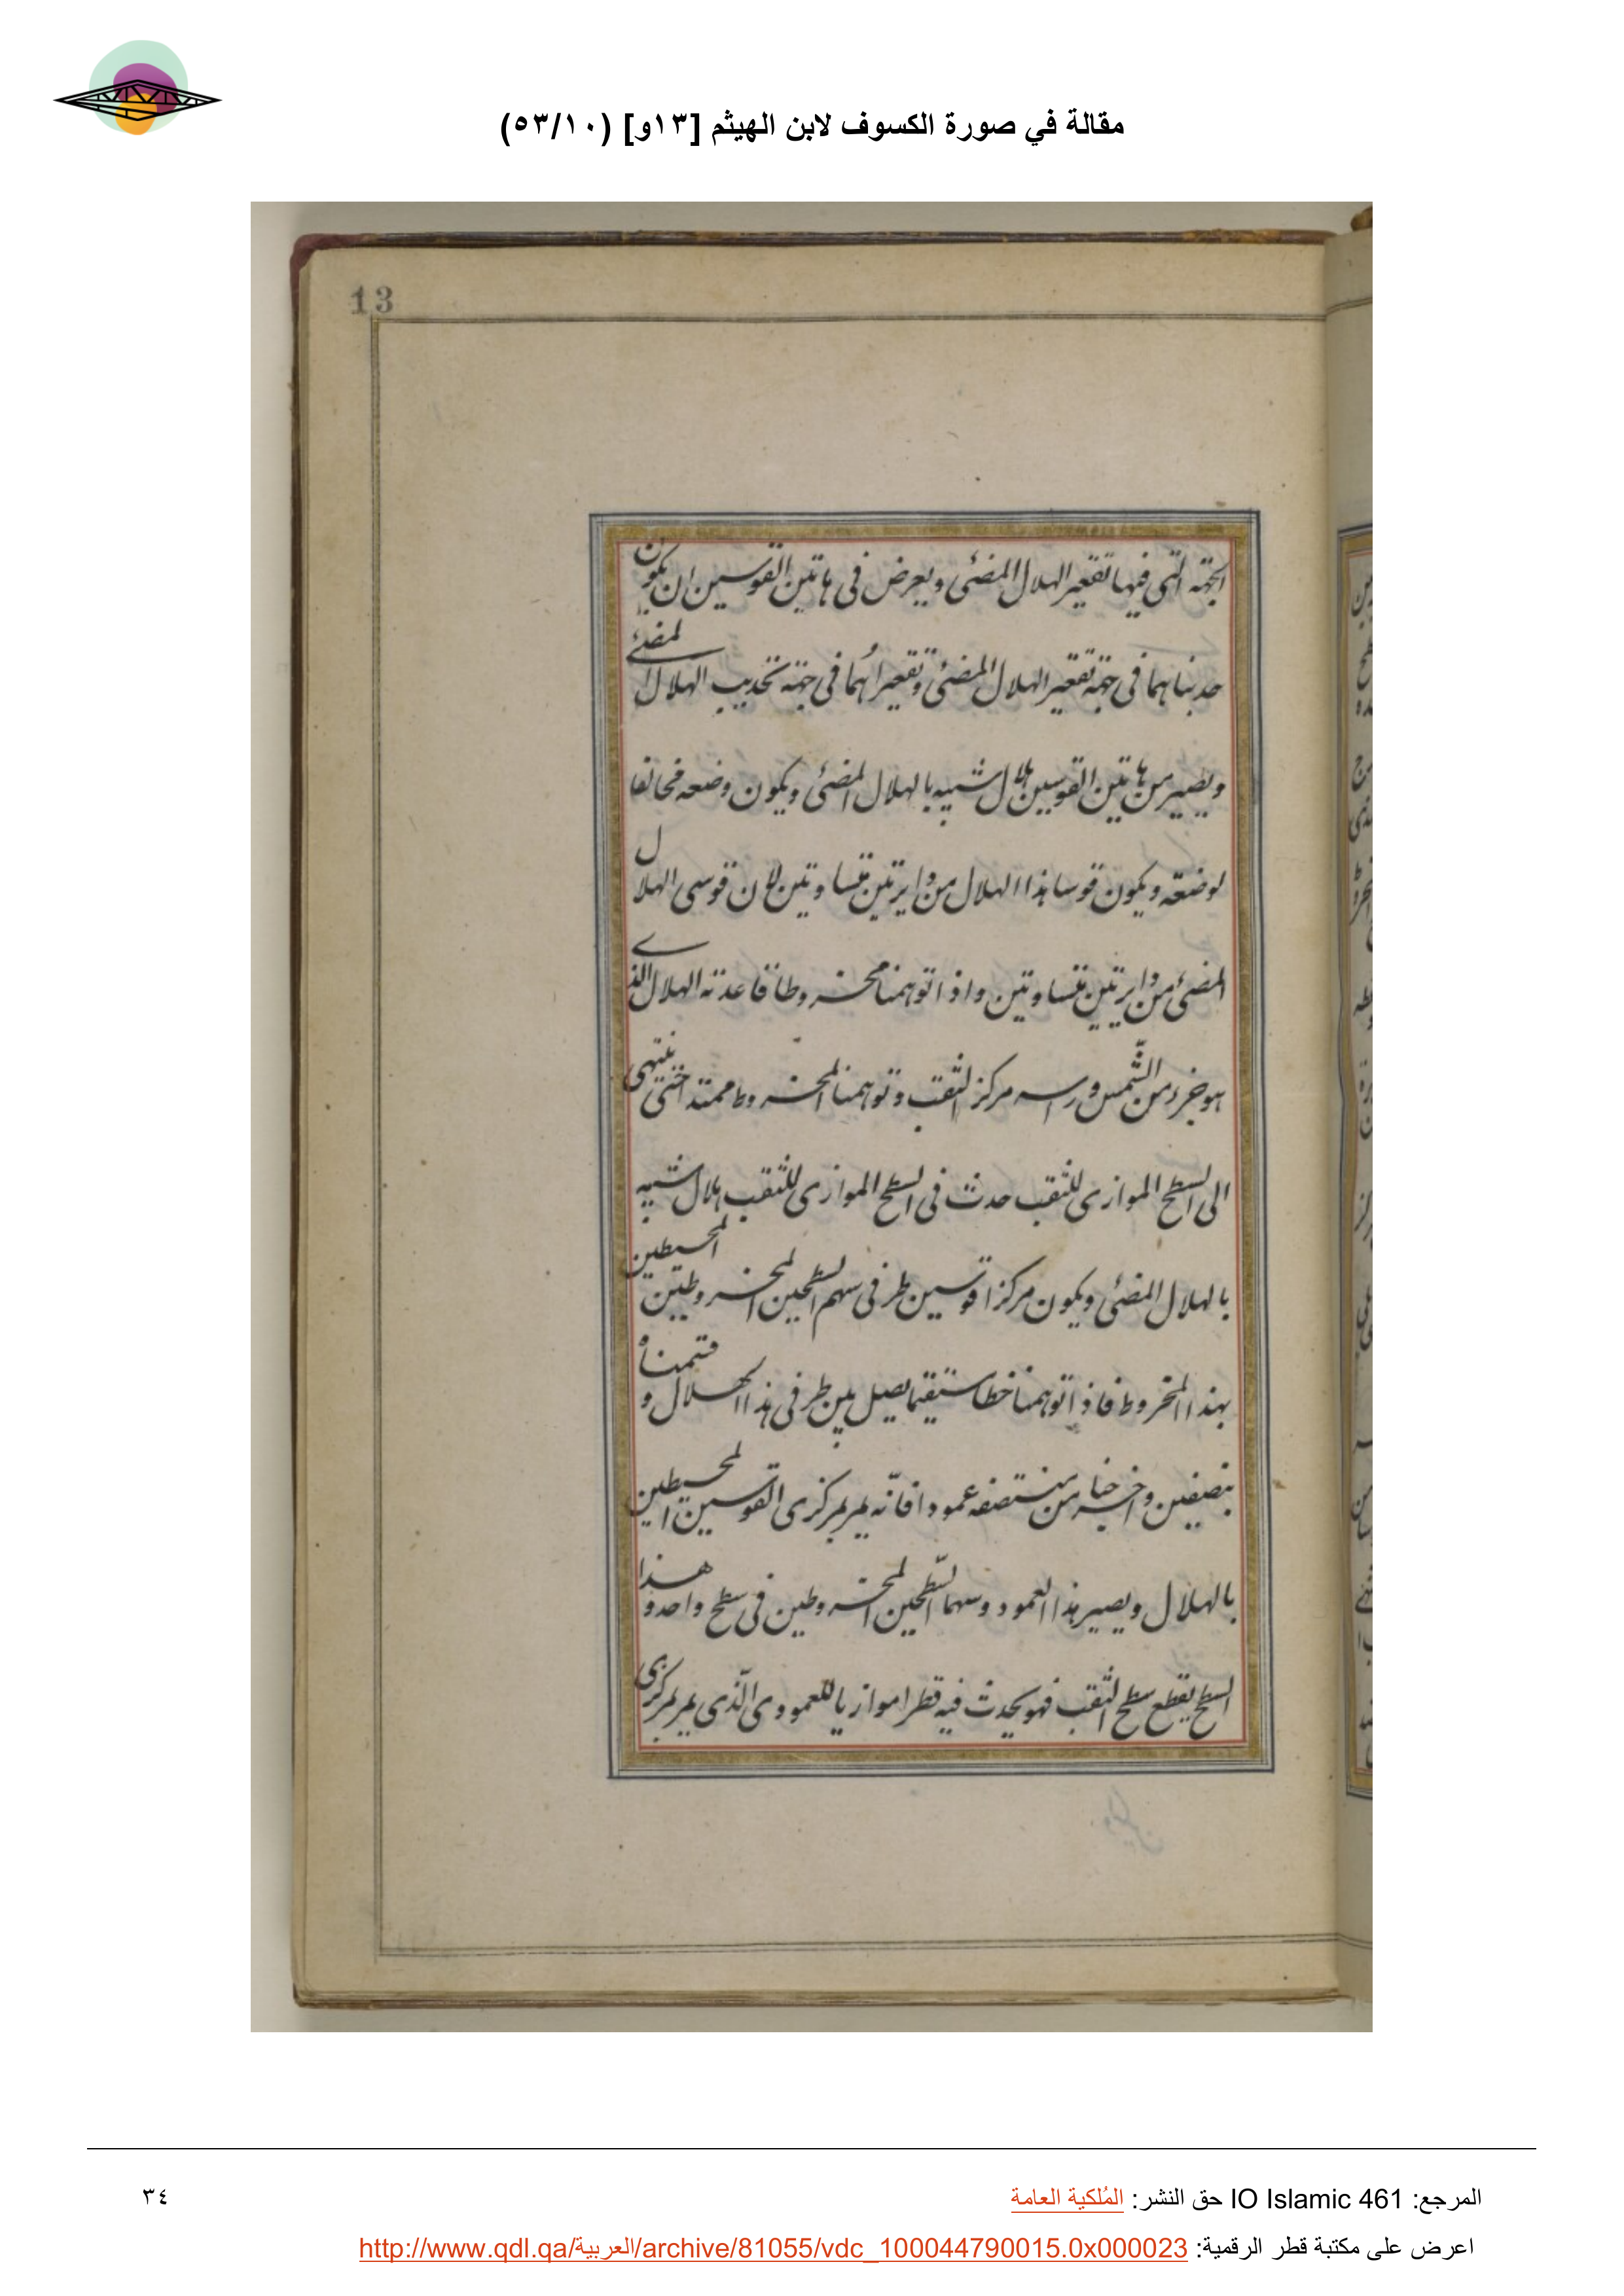 مقالة في صورة الكسوف لابن الهيثم [١٣و] (٥٣/١٠)
13
الجهة التى فيها تقعير الهلال المضئى ويعرض فى هاتين القوسين ان يكون
حدبتاهما فى جهة تقعير الهلال المضئى وتقعيراهما فى جهة تحديب الهلال المضئى
ويصير من هاتين القوسين هلال شبيه بالهلال المضئى ويكون وضعه مخالفا
لوضعه ويكون قوسا هذا الهلال من دايرتين متساوتين لان قوسى الهلال
المضئى من دايرتين متساوتين واذا توهمنا مخروطا قاعدته الهلال الذى
هو جزء من الشمس وراسه مركز الثقب وتوهمنا المخروط ممتدا حتى ينتهى
الى السطح الموازى للثقب حدث فى السطح الموازى للثقب هلال شبيه
بالهلال المضئى ويكون مركزا قوسين طرفى سهم السطحين المخروطيين المحيطين
بهذا المخروط فاذا توهمنا خطا مستقيما يصل بين طرفى هذا الهلال وقسمناه
بنصفين واخرجنا من منتصفه عمودا فانّه يمر بمركزى القوسين المحيطين
بالهلال ويصير هذا العمود وسهما السّطحين المخروطين فى سطح واحد وهذا
السطح يقطع سطح الثقب فهو يحدث فيه قطرا موازيا للعمودى الّذى يمر بمركزى
المرجع: IO Islamic 461 حق النشر: المُلكية العامة
٣٤
اعرض على مكتبة قطر الرقمية: http://www.qdl.qa/العربية/archive/81055/vdc_100044790015.0x000023